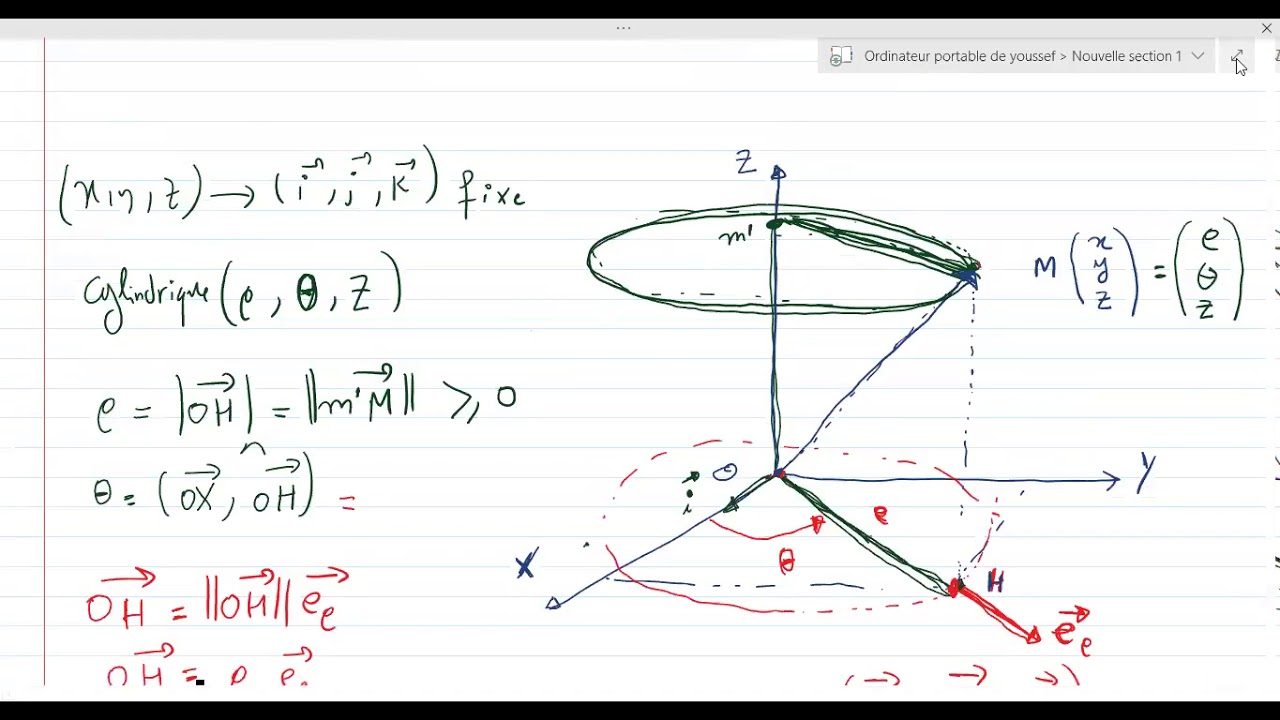 Ordinateur portable de youssef > Nouvelle section 1
(x, y, z) → (i⃗, j⃗, k⃗) fixe
cylindrique (ρ, θ, Z)
ρ = |OH⃗| = ||m'M⃗|| ⩾ 0
θ = (OX⃗, OH⃗) =
OH⃗ = ||OH⃗|| e⃗ρ
OH⃗ = ρ e⃗
Z
m'
M (x y z) = (ρ θ z)
O
i⃗
Y
ρ
X
θ
H
e⃗ρ
(→ → →)